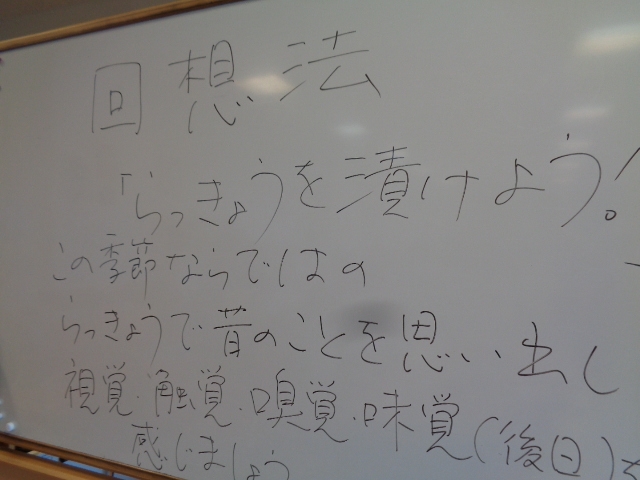 回想法
「らっきょうを漬けよう!
この季節ならではの
らっきょうで昔のことを思い出し
視覚・触覚・嗅覚・味覚(後日)を
感じましょう